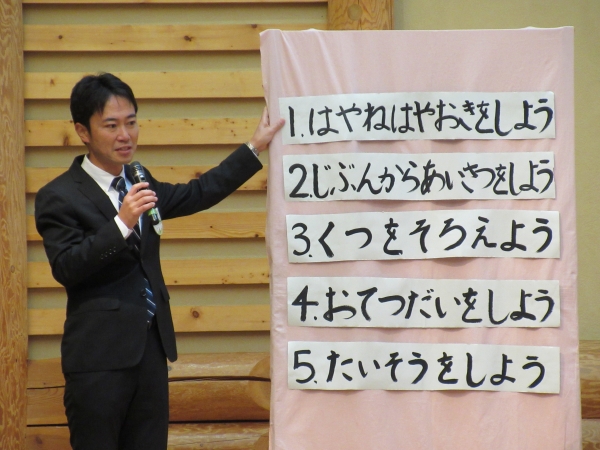 1.はやねはやおきをしよう
2.じぶんからあいさつをしよう
3.くつをそろえよう
4.おてつだいをしよう
5.たいそうをしよう